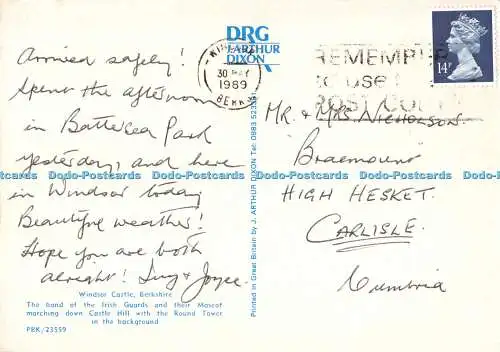 Arrived safely!
Spent the afternoon
in Battersea Park
yesterday, and here
in Windsor today
Beautiful weather!
Hope you are both
alright! Lucy & Joyce.
Windsor Castle, Berkshire
The band of the Irish Guards and their Mascot
marching down Castle Hill with the Round Tower
in the background
PBK/23559
DRG
J.ARTHUR
DIXON
Printed in Great Britain by J. ARTHUR DIXON Tel: 0983 523381
30 MAY
1989
BERKS
REMEMBER
to use
POST CODE
14P
MR. & MRS NICHOLSON.
Braemount
HIGH HESKET.
CARLISLE.
Cumbria
Dodo-Postcards Dodo-Postcards Dodo-Postcards Dodo-Postcards Dodo-Postcards